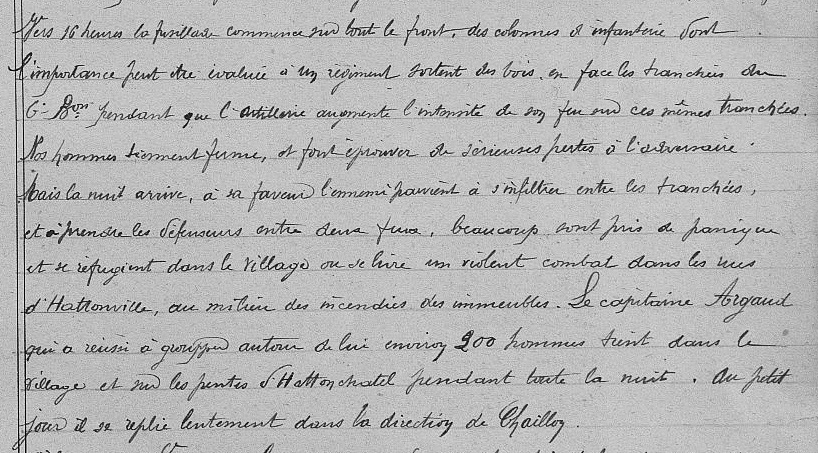 Vers 16 heures la fusillade commence sur tout le front, des colonnes d'infanterie dont
l'importance peut être évaluée à un régiment sortent des bois, en face les tranchées du
6e Bon pendant que l'artillerie augmente l'intensité de son feu sur ces mêmes tranchées.
Nos hommes tiennent ferme, et font éprouver de sérieuses pertes à l'adversaire.
Mais la nuit arrive, à sa faveur l'ennemi parvient à s'infiltrer entre les tranchées,
et à prendre les défenseurs entre deux feux, beaucoup sont pris de panique
et se réfugient dans le village ou se livre un violent combat dans les rues
d'Hattonville, au milieu des incendies des immeubles. Le capitaine Argaud
qui a réussi à groupper autour de lui environ 200 hommes tient dans le
village et sur les pentes d'Hattonchatel pendant toute la nuit. Au petit
jour il se replie lentement dans la direction de Chaillon.